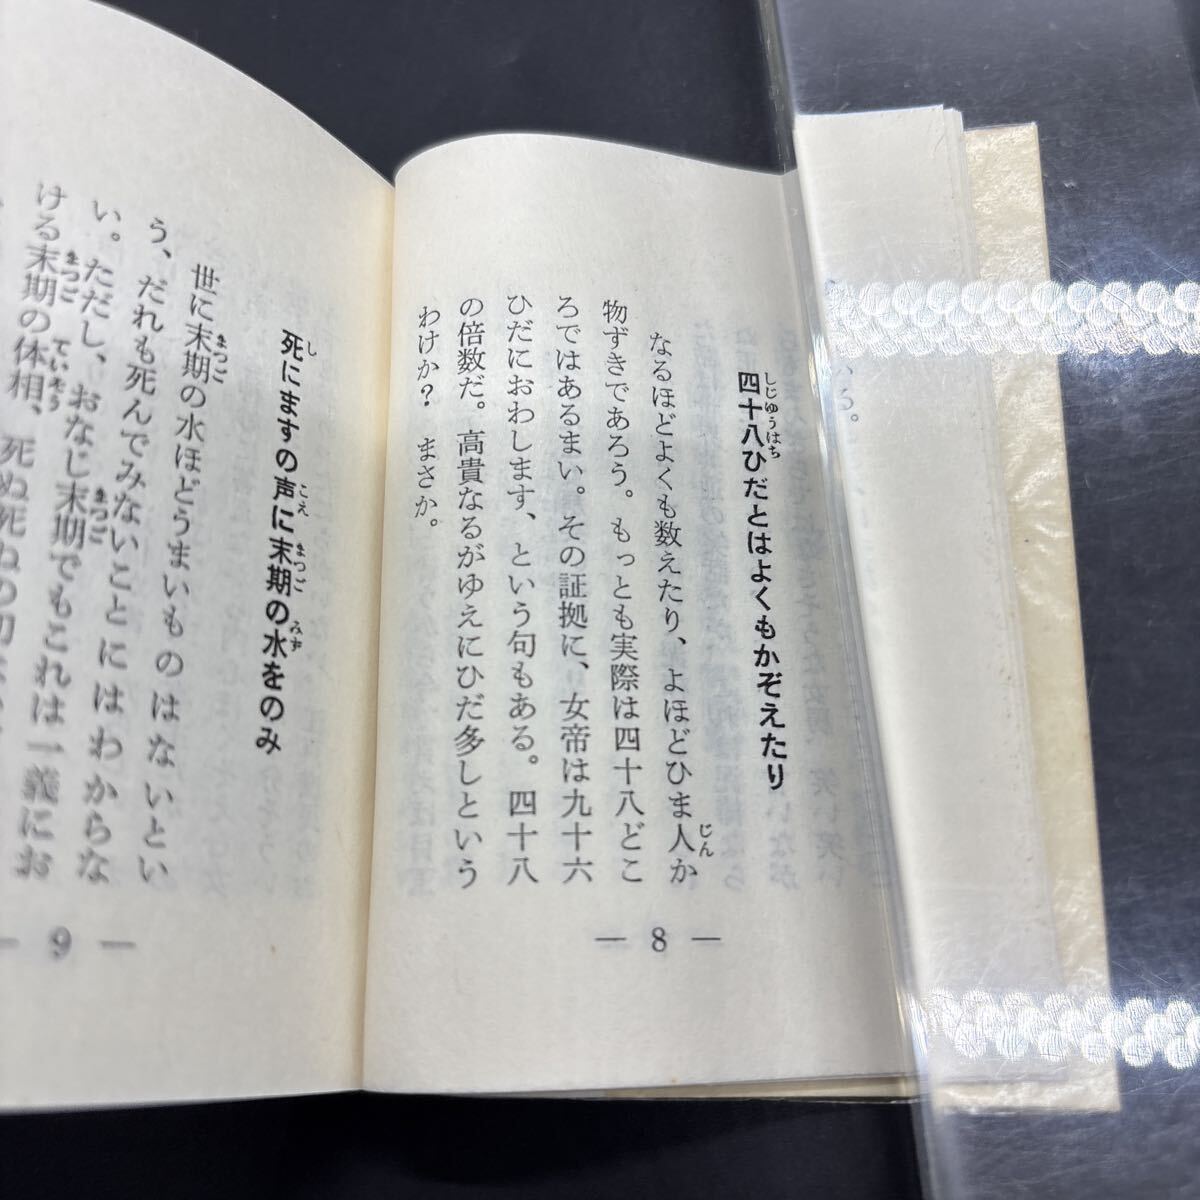 四十八ひだとはよくもかぞえたり
なるほどよくも数えたり、よほどひま人か
物ずきであろう。もっとも実際は四十八どこ
ろではあるまい。その証拠に、女帝は九十六
ひだにおわします、という句もある。四十八
の倍数だ。高貴なるがゆえにひだ多しという
わけか? まさか。
— 8 —
死にますの声に末期の水をのみ
世に末期の水ほどうまいものはないとい
う、だれも死んでみないことにはわからな
い。ただし、おなじ末期でもこれは一義にお
ける末期の体相、死ぬ死ぬの
— 9 —